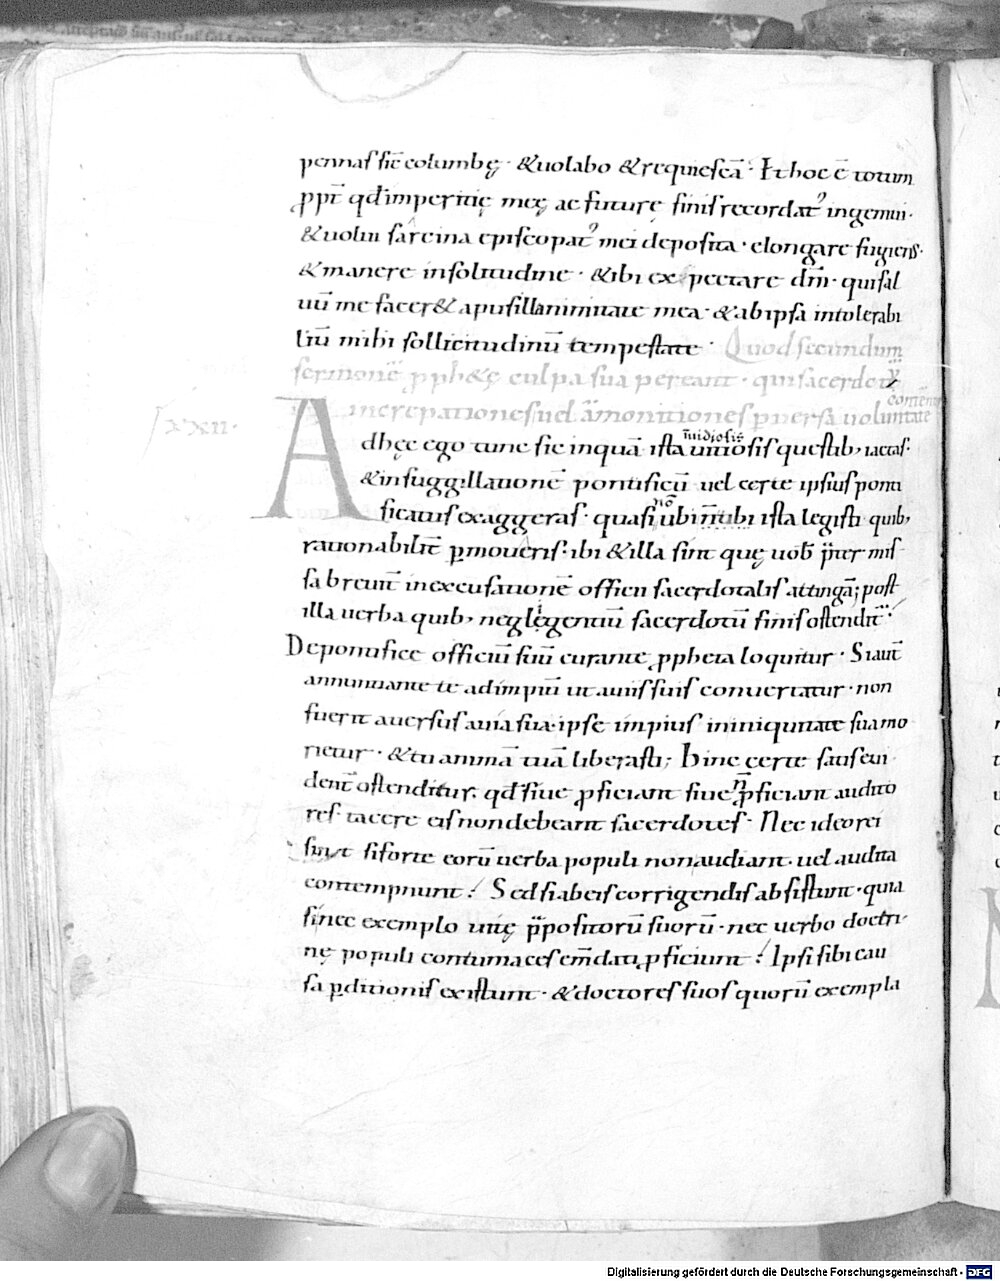 pennas sic̄ columbę · & uolabo & requiescā · Et hoc ē totum
ꝓpt̄ qđ imperitię meę ac futurę finis recordatꝰ ingemui ·
& uolui sarcina episcopatꝰ mei deposita · elongare fugiens ·
& manere in solitudine · & ibi expectare dm̄ · qui sal
uū me facer& a pusillanimitate mea · & ab ipsa intolerabi
liū mihi sollicitudinū tempestate · Quod secundum
sermonē ꝓph&ę culpa sua pereant · qui sacerdotū
increpationes uel āmonitiones ꝑuersa uoluntate contemn̄
xxii ·
Ad hęc ego tunc sic inquā ista uitiosis īuidiosis questib; iactas ·
& in suggillationē pontificū uel certe ipsius ponti
ficatus exaggeras · quasi ubi n̄ō n̄ tibi ista legisti quib;
rationabilit̄ ꝑmoueris · ibi & illa sint quę uob̄ p̄ter mis
sa breuit̄ in excusationē officii sacerdotalis attingā; post
illa uerba quib; neglegentiū i sacerdotū finis ostendit̄
De pontifice officiū suū curante ꝓpheta loquitur · Si aut̄
annuntiante te ad impiū ut a uiis suis conuertatur · non
fuerit auersus a uia sua · ipse impius in iniquitate sua mo
rietur · & tu animā tuā liberasti; Hinc certe satis eui
dent̄ ostenditur · qđ siue ꝓficiant siue n̄ ꝓficiant audito
res tacere eis non debeant sacerdotes · Nec ideo rei
sunt si forte eorū uerba populi non audiant · uel audita
contempnunt : Sed si ab eis corrigendis absistunt · quia
si nec exemplo uitę p̄positorū suorū · nec uerbo doctri
nę populi contumaces em̄dati ꝓficiunt : Ipsi sibi cau
sa ꝑditionis existunt · & doctores suos quorū exempla
Digitalisierung gefördert durch die Deutsche Forschungsgemeinschaft - DFG